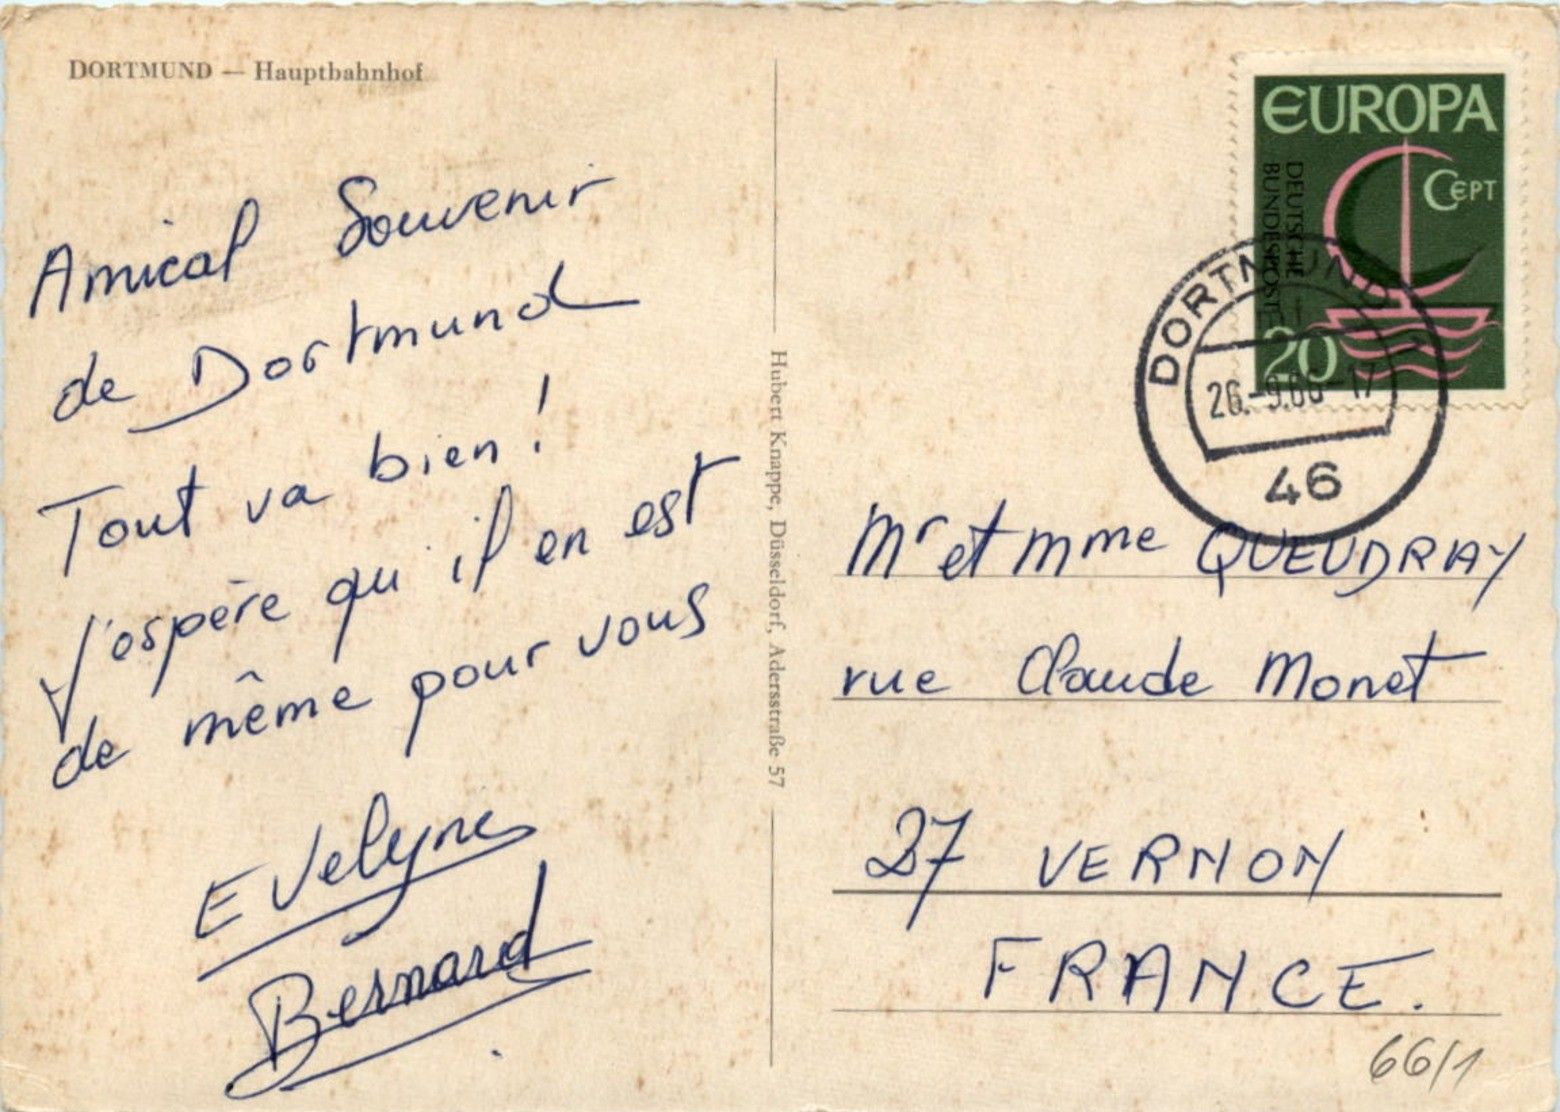 DORTMUND — Hauptbahnhof
Amical Souvenir
de Dortmund
Tout va bien !
J'espère qu'il en est
de même pour vous
Evelyne
Bernard
Hubert Knappe, Düsseldorf, Adersstraße 57
EUROPA
CEPT
DEUTSCHE
BUNDESPOST
20
DORTMUND
26.-9.66-17
46
Mr et Mme QUEUDRAY
rue Claude Monet
27 VERNON
FRANCE.
66/1